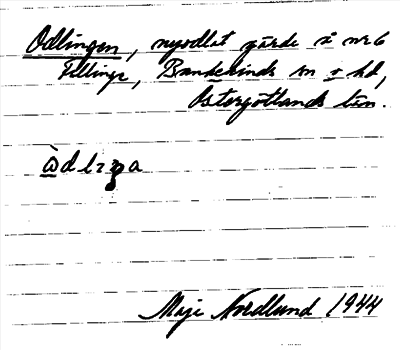 Odlingen, nyodlat gärde å nr 6
Fillinge, Bankekinds sn o hd,
Östergötlands län.
Maja Nordlund 1944